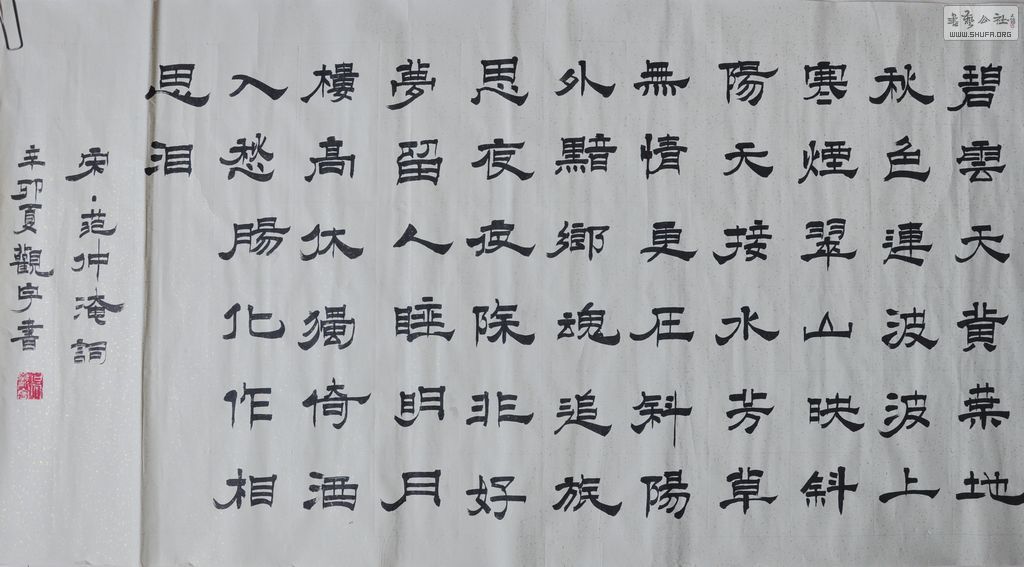 碧雲天黃葉地
秋色連波波上
寒煙翠山映斜
陽天接水芳草
無情更在斜陽
外黯鄉魂追旅
思夜夜除非好
夢留人睡明月
樓高休獨倚酒
入愁腸化作相
思泪
宋·范仲淹詞
辛卯夏觀宇書
書藝公社
WWW.SHUFA.ORG